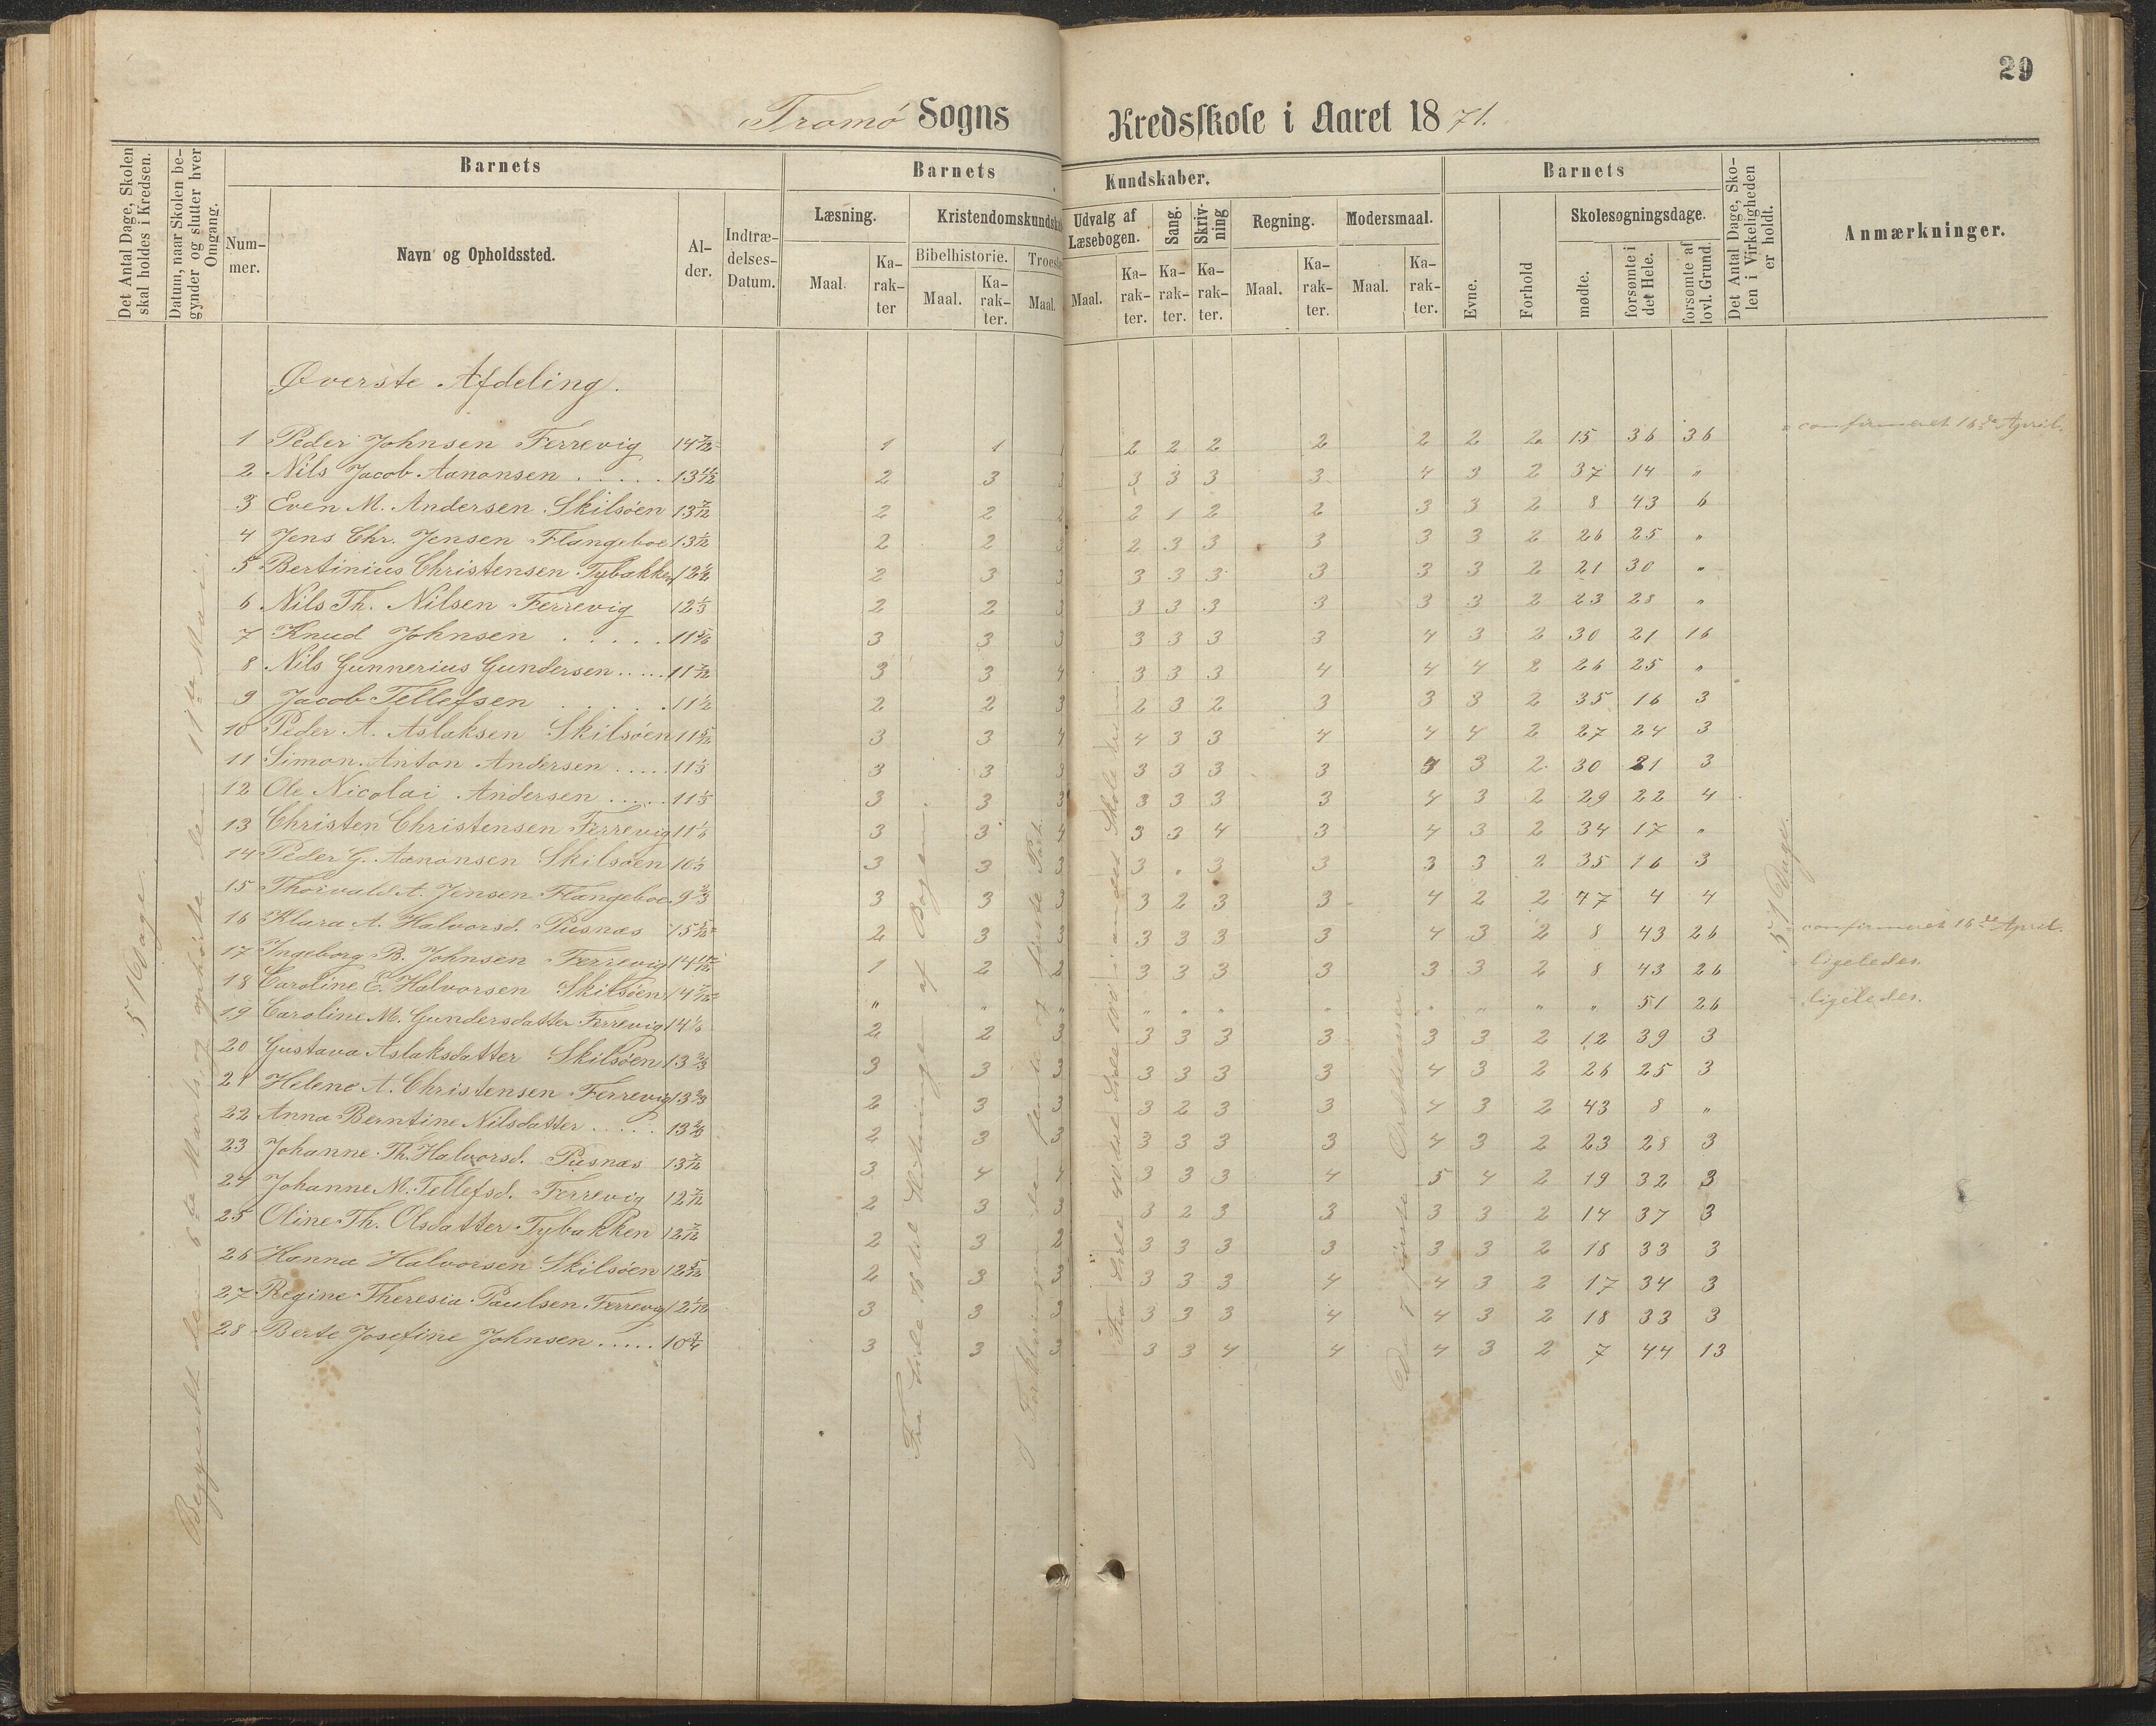 29
Tromö Sogns Kredsskole i Aaret 1871.
Det Antal Dage, Skolen skal holdes i Kredsen.
Datum, naar Skolen begynder og slutter hver Omgang.
Barnets
Nummer.
Navn og Opholdssted.
Alder.
Indtrædelses-Datum.
Barnets Kundskaber.
Læsning.
Maal.
Karakter
Kristendomskundsk
Bibelhistorie.
Maal.
Karakter.
Troes
Maal.
Udvalg af Læsebogen.
Maal.
Karakter.
Sang.
Karakter.
Skrivning
Karakter.
Regning.
Maal.
Karakter.
Modersmaal.
Maal.
Karakter.
Barnets
Evne.
Forhold
Skolesøgningsdage.
mødte.
forsømte i det Hele.
forsømte af lovl. Grund.
Det Antal Dage, Skolen i Virkeligheden er holdt.
Anmærkninger.
Øverste Afdeling.
1 Peder Johnsen Ferrevig 14 7/12 1 1 1 2 2 2 2 2 2 2 15 36 36 confirmeret 16de April.
2 Nils Jacob Aanonsen ..... 13 11/12 2 3 3 3 3 3 3 4 3 2 37 14 "
3 Even M. Andersen Skilsöen 13 7/12 2 2 2 2 1 2 2 3 3 2 8 43 6
4 Jens Chr. Jensen Flangeboe 13 1/12 2 2 3 2 3 3 3 3 3 2 26 25 "
5 Bertinius Christensen Tybakken 12 1/2 2 3 3 3 3 3 3 3 3 2 21 30 "
6 Nils Th. Nilsen Ferrevig 12 1/3 2 2 3 3 3 3 3 3 3 2 23 28 "
7 Knud Johnsen ..... 11 5/6 3 3 3 3 3 3 3 4 3 2 30 21 16
8 Nils Gunnerius Gundersen ..... 11 7/12 3 3 4 3 3 3 4 4 4 2 26 25 "
9 Jacob Tellefsen ..... 11 1/2 2 2 3 2 3 2 3 3 3 2 35 16 3
10 Peder A. Aslaksen Skilsöen 11 5/12 3 3 4 4 3 3 4 4 4 2 27 24 3
11 Simon Anton Andersen ..... 11 1/3 3 3 3 3 3 3 3 3 3 2 30 21 3
12 Ole Nicolai Andersen ..... 11 1/3 3 3 3 3 3 3 3 4 3 2 29 22 4
13 Christen Christensen Ferrevig 11 1/6 3 3 4 3 3 4 3 4 3 2 34 17 "
14 Peder G. Aanonsen Skilsöen 10 1/3 3 3 3 3 " 3 3 3 3 2 35 16 3
15 Thorvald A. Jensen Flangeboe 9 2/3 3 3 3 3 2 3 3 4 2 2 47 4 4
16 Klara A. Halvorsd. Pusnæs 15 5/12 2 3 3 3 3 3 3 4 3 2 8 43 26 confirmeret 16de April.
17 Ingeborg B. Johnsen Ferrevig 14 11/12 1 2 2 3 3 3 3 3 3 2 8 43 26 ligeledes.
18 Caroline E. Halvorsen Skilsöen 14 7/12 " " " " " " " " " " " 51 26 ligeledes.
19 Caroline M. Gundersdatter Ferrevig 14 1/6 2 2 3 3 3 3 3 3 3 2 12 39 3
20 Gustava Aslaksdatter Skilsöen 13 2/3 3 3 3 3 3 3 3 4 3 2 26 25 3
21 Helene A. Christensen Ferrevig 13 2/3 2 3 3 3 2 3 3 4 3 2 43 8 "
22 Anna Berntine Nilsdatter ..... 13 2/3 2 3 3 3 3 3 3 4 3 2 23 28 3
23 Johanne Th. Halvorsd. Pusnæs 13 7/12 3 4 4 3 3 3 4 5 4 2 19 32 3
24 Johanne M. Tellefsd. Ferrevig 12 7/12 2 3 3 3 2 3 3 3 3 2 14 37 3
25 Oline Th. Olsdatter Tybakken 12 7/12 2 3 2 3 3 3 3 3 3 2 18 33 3
26 Hanna Halvorsen Skilsöen 12 5/12 2 3 3 3 3 3 4 4 3 2 17 34 3
27 Regine Theresia Paulsen Ferrevig 12 1/12 3 3 3 3 3 3 4 4 3 2 18 33 3
28 Berte Josefine Johnsen ..... 10 3/4 3 3 3 3 3 4 4 4 3 2 7 44 13
51 Dage.
Begyndt den 6te Marts og ophørte den 11te Mai.
af Bogen.
første Part.
51 Dage.